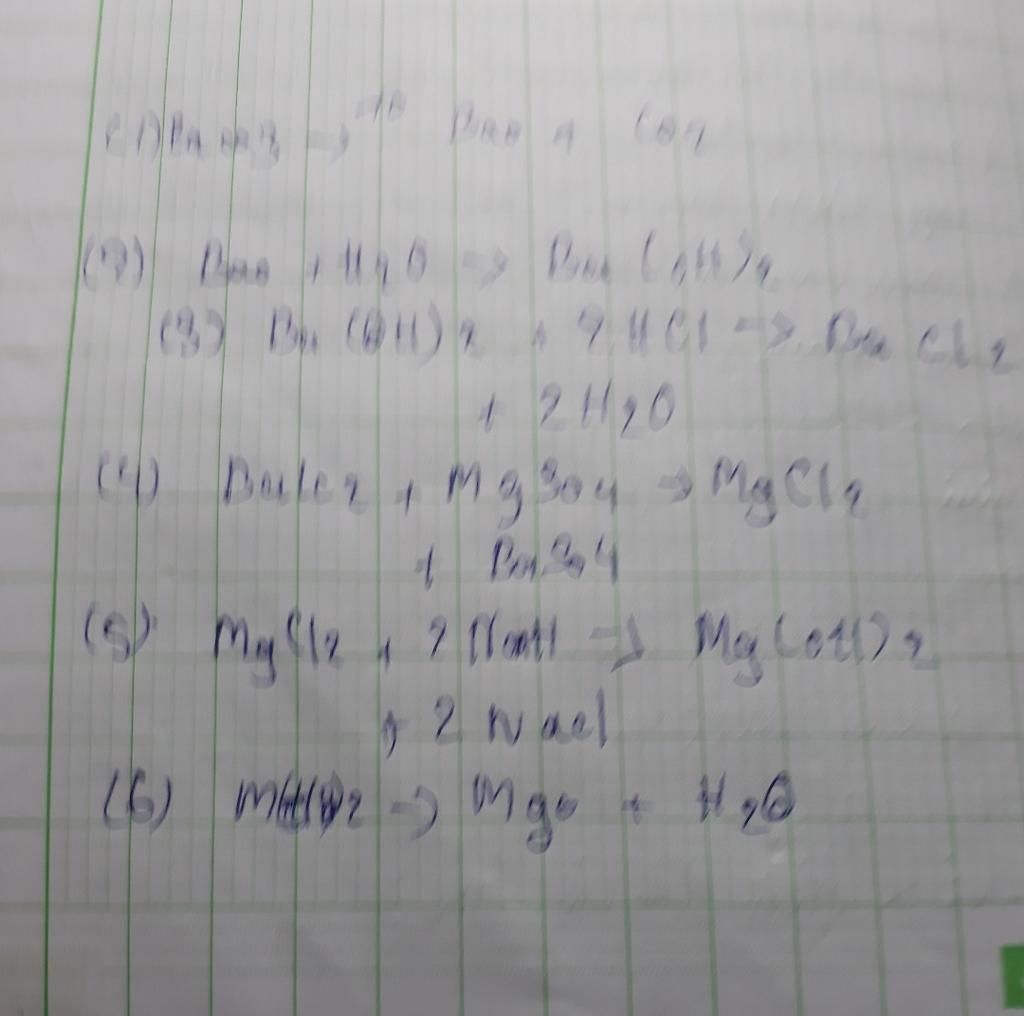 (1) BaCO3 → to BaO + CO2
(2) BaO + H2O → Ba(OH)2
(3) Ba(OH)2 + 2HCl → BaCl2
+ 2H2O
(4) BaCl2 + MgSO4 → MgCl2
+ BaSO4
(5) MgCl2 + 2NaOH → Mg(OH)2
+ 2NaCl
(6) → MgO + H2O